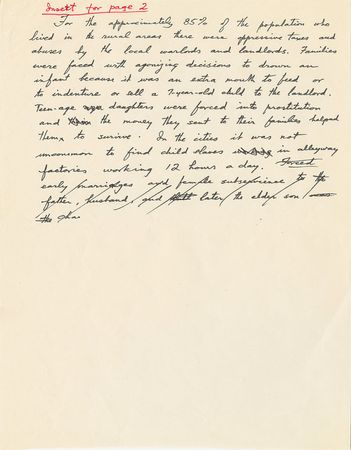 Insert for page 2
For the approximately 85% of the population who
lived in the rural areas there were oppressive taxes and
abuses by the local warlords and landlords. Families
were faced with agonizing decisions to drown an
infant because it was an extra mouth to feed or
to indenture or sell a 7-year-old child to the landlord.
Teen-age daughters were forced into prostitution
and the money they sent to their families helped
them to survive. In the cities it was not
uncommon to find child slaves in alleyway
factories working 12 hours a day. Forced
early marriages and female subservience to the
father, husband, and later the elder son
the